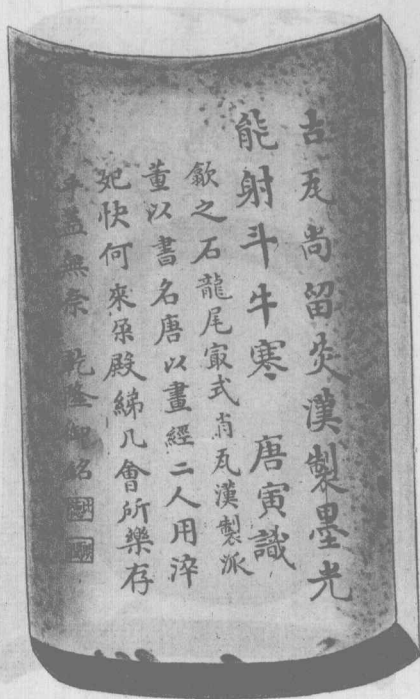 古瓦尚留炎漢製墨光
能射斗牛寒 唐寅識
歙之石龍尾冣式肖瓦漢製派
董以書名唐以畫經二人用淬
快何來殿綈几會所樂存
盖無奈 乾隆御銘